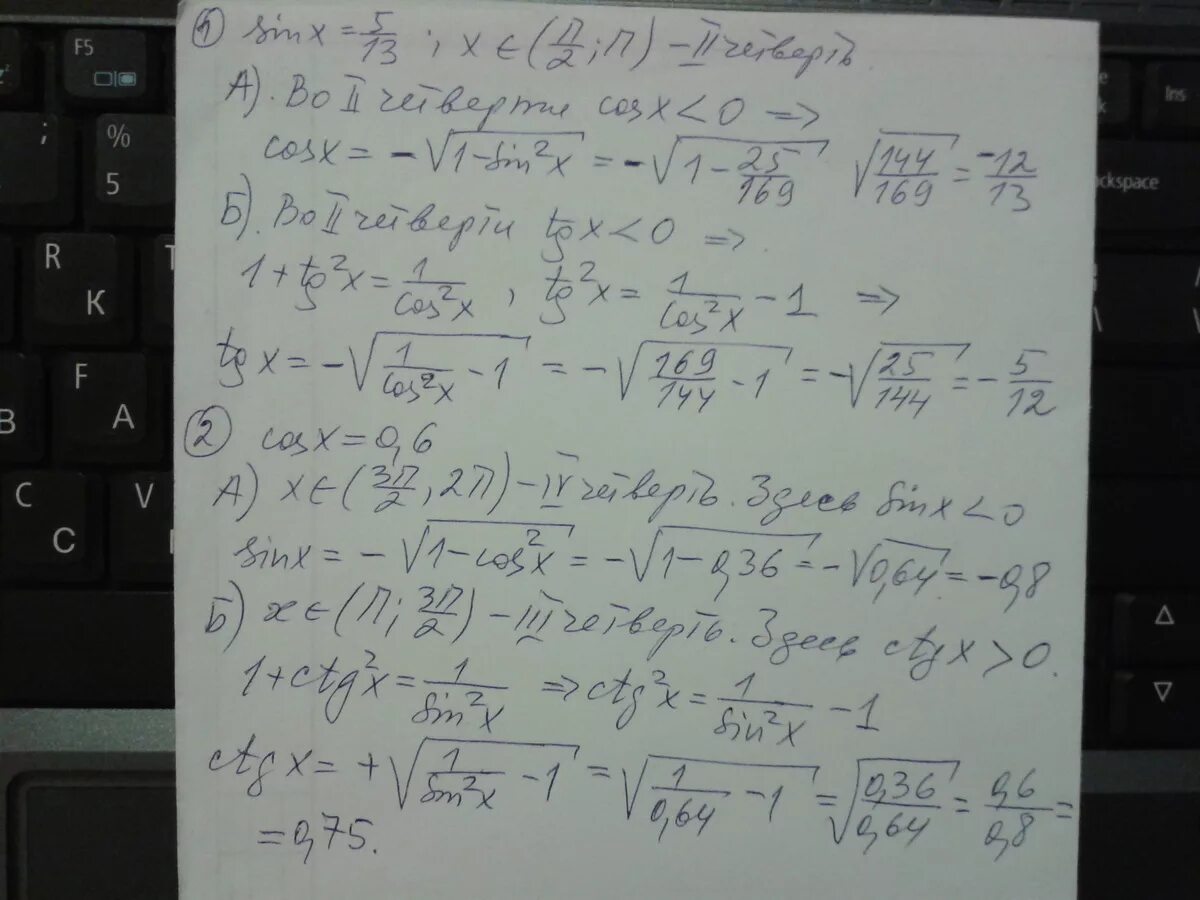 1) sinx = 5/13 ; x ∈ (П/2; П) – II четверть
А). Во II четверти cosx < 0 =>
cosx = -√(1-sin²x) = -√(1 - 25/169) √(144/169) = -12/13
Б). Во II четверти tgx < 0 =>
1 + tg²x = 1/cos²x , tg²x = 1/cos²x - 1 =>
tgx = -√(1/cos²x - 1) = -√(169/144 - 1) = -√(25/144) = -5/12
2) cosx = 0,6
А) x ∈ (3П/2, 2П) – IV четверть. Здесь sinx < 0
sinx = -√(1-cos²x) = -√(1-0,36) = -√0,64 = -0,8
Б) x ∈ (П; 3П/2) – III четверть. Здесь ctgx > 0.
1 + ctg²x = 1/sin²x => ctg²x = 1/sin²x - 1
ctgx = +√(1/sin²x - 1) = √(1/0,64 - 1) = √(0,36/0,64) = 0,6/0,8 =
= 0,75.
F5
%
5
;
R
К
T
F
А
В
C
С
V
Ins
ckspace